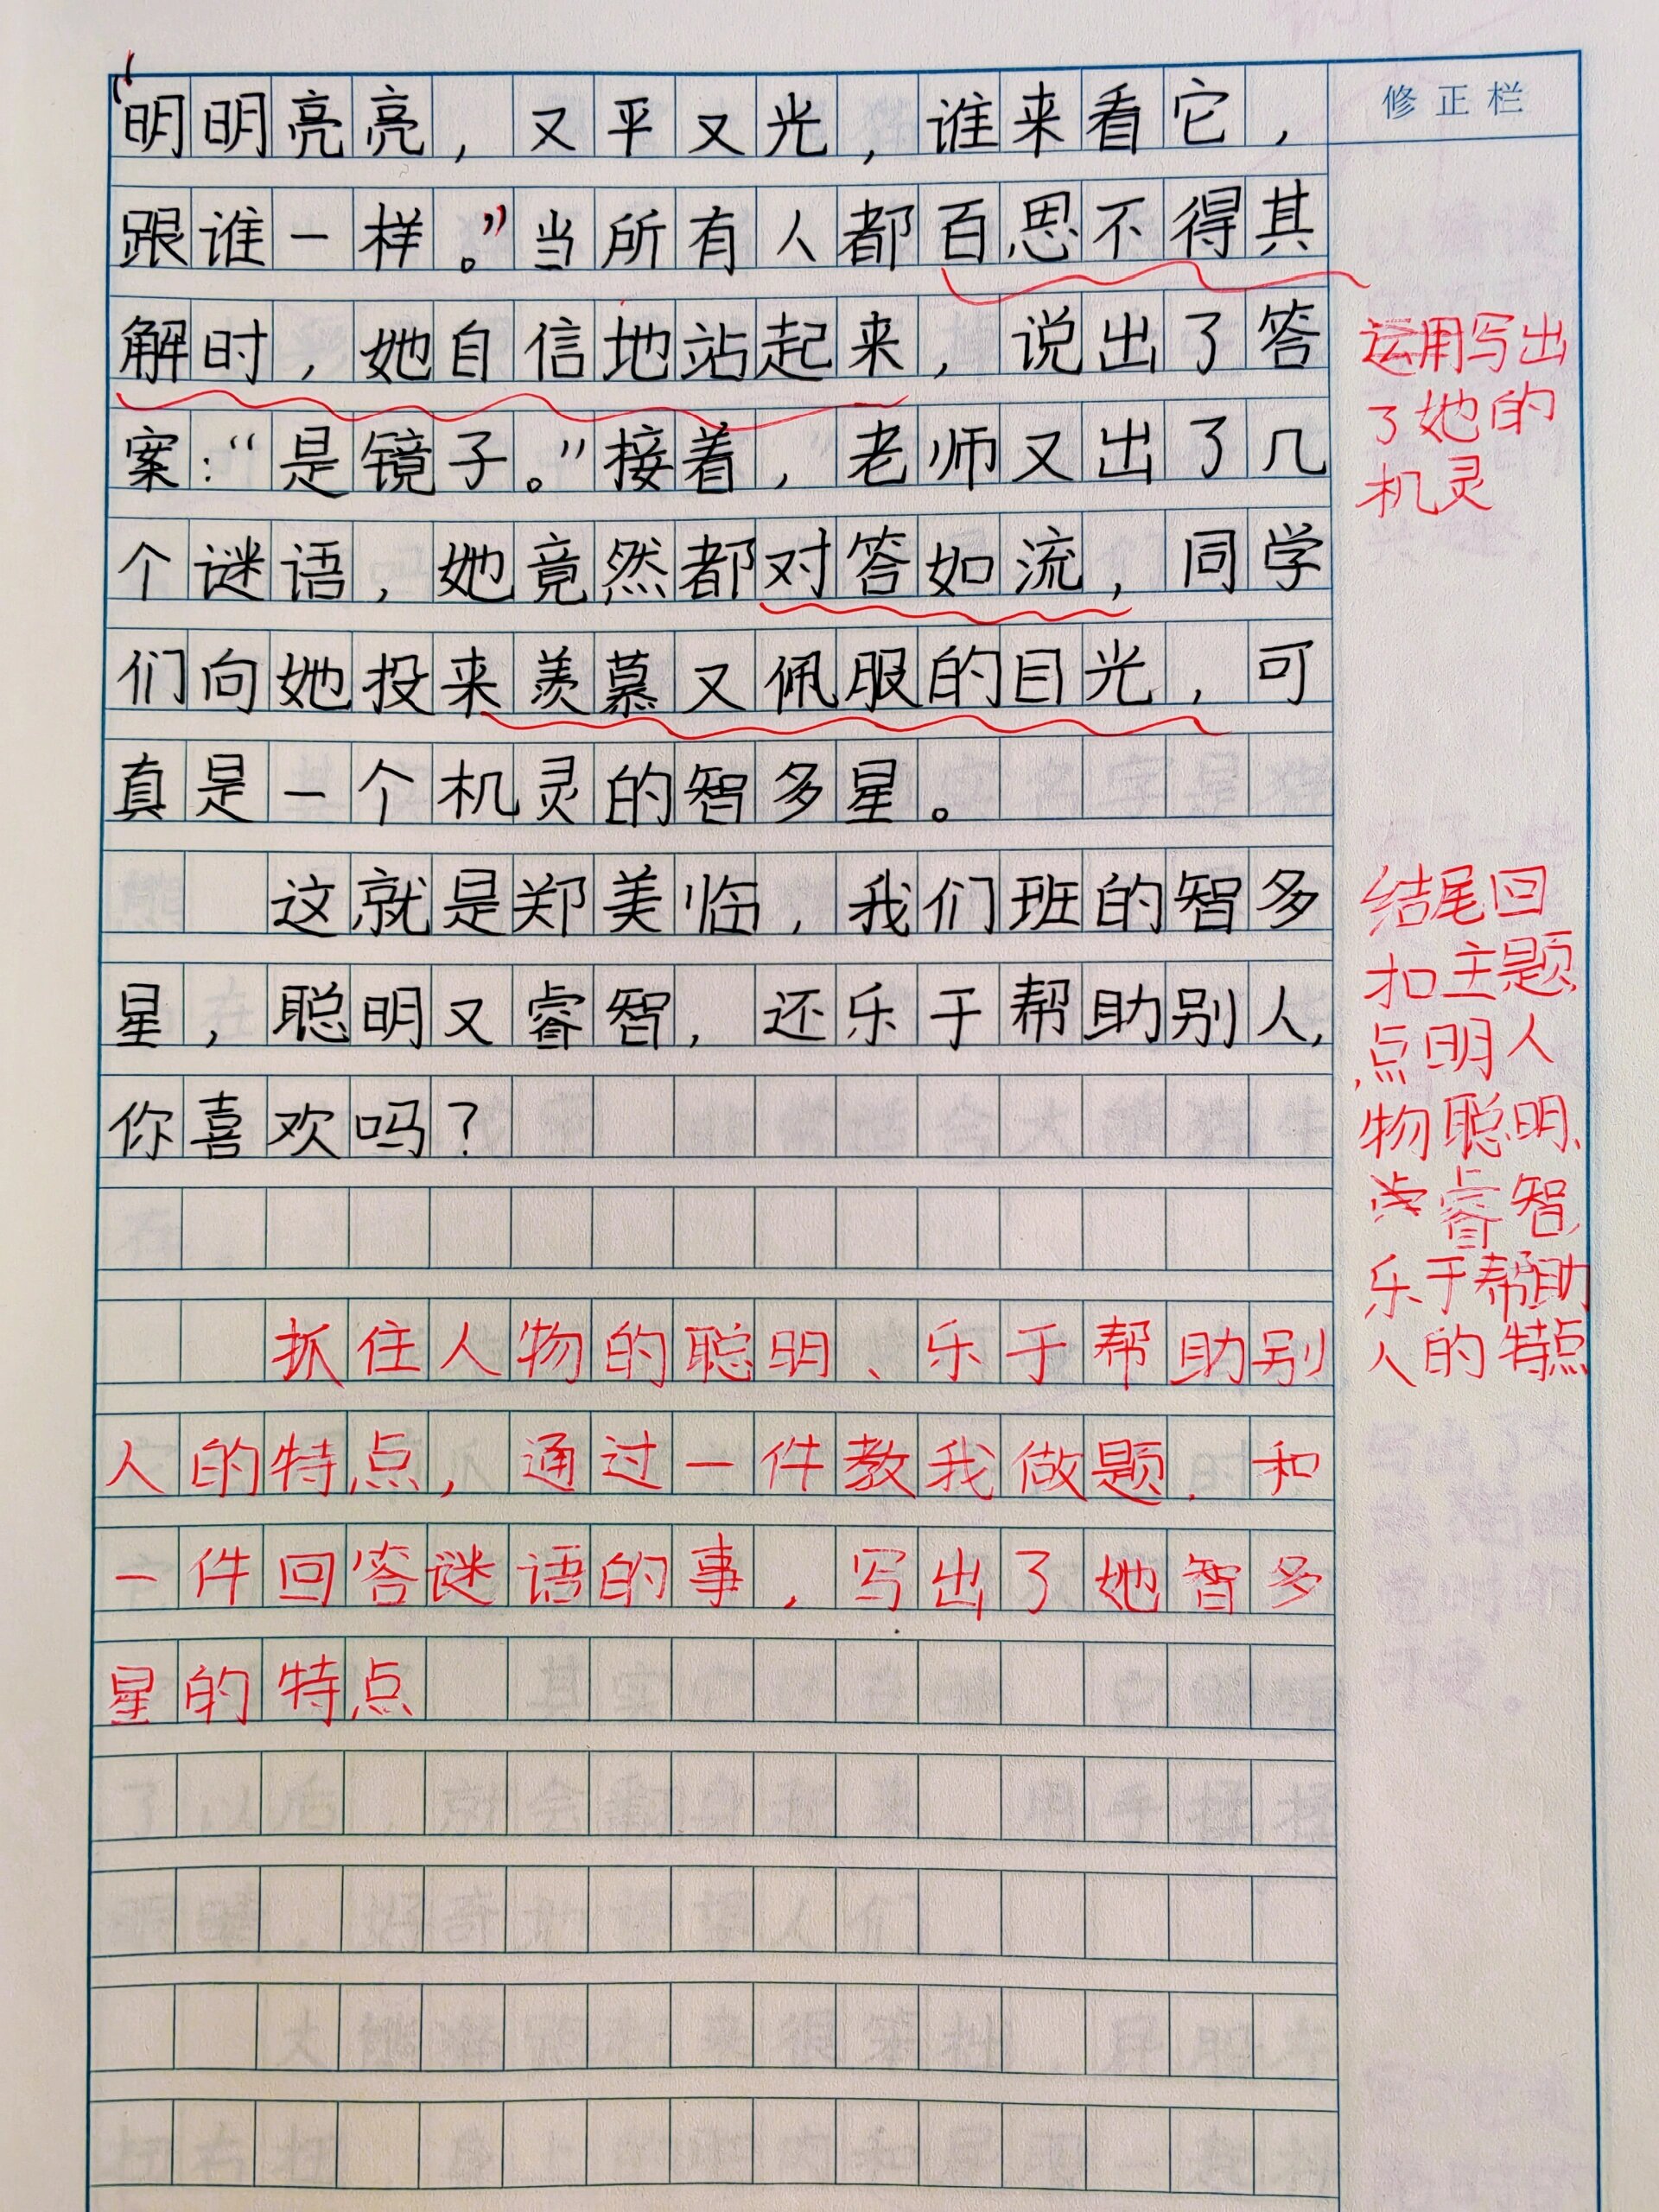 修正栏
“明明亮亮，又平又光，谁来看它，
跟谁一样。”当所有人都百思不得其
解时，她自信地站起来，说出了答
案：“是镜子。”接着，老师又出了几
个谜语，她竟然都对答如流，同学
们向她投来羡慕又佩服的目光，可
真是一个机灵的智多星。
这就是郑美临，我们班的智多
星，聪明又睿智，还乐于帮助别人，
你喜欢吗？
抓住人物的聪明、乐于帮助别
人的特点，通过一件教我做题、和
一件回答谜语的事，写出了她智多
星的特点
运用写出
了她的
机灵
结尾回
扣主题，
点明人
物聪明、
睿智，
乐于帮助
人的特点